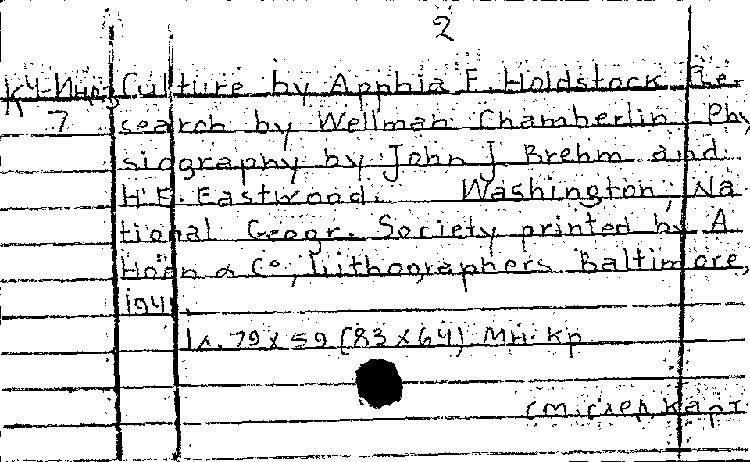 2
Culture by Apphia E. Holdstock Re-
7 search by Wellman Chamberlin Phy
siography by John J. Brehm and
H.E. Eastwood. Washington, Na
tional Geogr. Society printed by A
Hoen & Co, Lithographers Baltimore,
194
1л. 79 x 59 (83 x 64). Мн. кр
см. след. карт